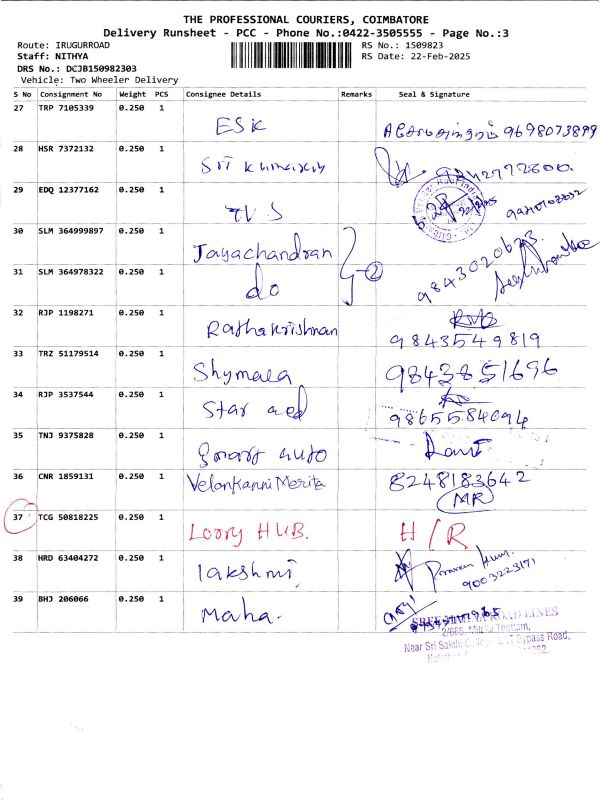 THE PROFESSIONAL COURIERS, COIMBATORE
Delivery Runsheet - PCC - Phone No.:0422-3505555 - Page No.:3
Route: IRUGURROAD RS No.: 1509823
Staff: NITHYA RS Date: 22-Feb-2025
DRS No.: DCJB150982303
Vehicle: Two Wheeler Delivery
S No Consignment No Weight PCS Consignee Details Remarks Seal & Signature
27 TRP 7105339 0.250 1
ESK 9698073899
28 HSR 7372132 0.250 1
Sri Kumaran
29 EDQ 12377162 0.250 1
TVS
30 SLM 364999897 0.250 1
Jayachandran 2 9843020673
31 SLM 364978322 0.250 1
do
32 RJP 1198271 0.250 1
Rathakrishnan 9843549819
33 TRZ 51179514 0.250 1
Shymala 9843851696
34 RJP 3537544 0.250 1
Star aed 9865584094
35 TNJ 9375828 0.250 1
auto Ravi
36 CNR 1859131 0.250 1
Velankanni Merita 8248183642
MR
37 TCG 50818225 0.250 1
Lorry HUB. H/R
38 HRD 63404272 0.250 1
lakshmi 9003223171
39 BHJ 206066 0.250 1
Maha.
ROAD LINES
2/665, Thottam,
Near Sri Sakthi Bypass Road,